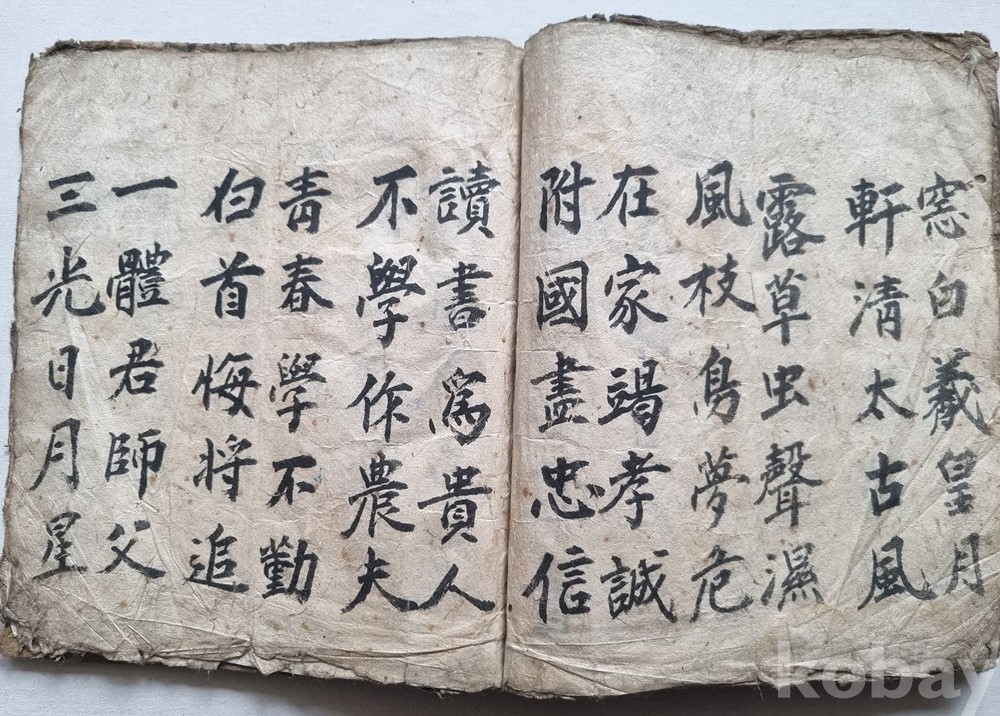 窓白羲皇月
軒清太古風
露草虫聲濕
風枝鳥夢危
在家竭孝誠
附國盡忠信
讀書爲貴人
不學作農夫
靑春學不勤
白首悔将追
一體君師父
三光日月星
kobay